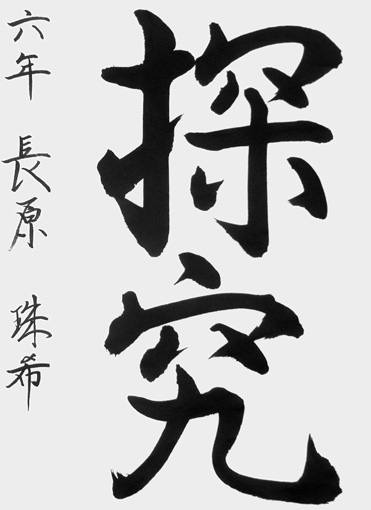 探究
六年 長原 珠希